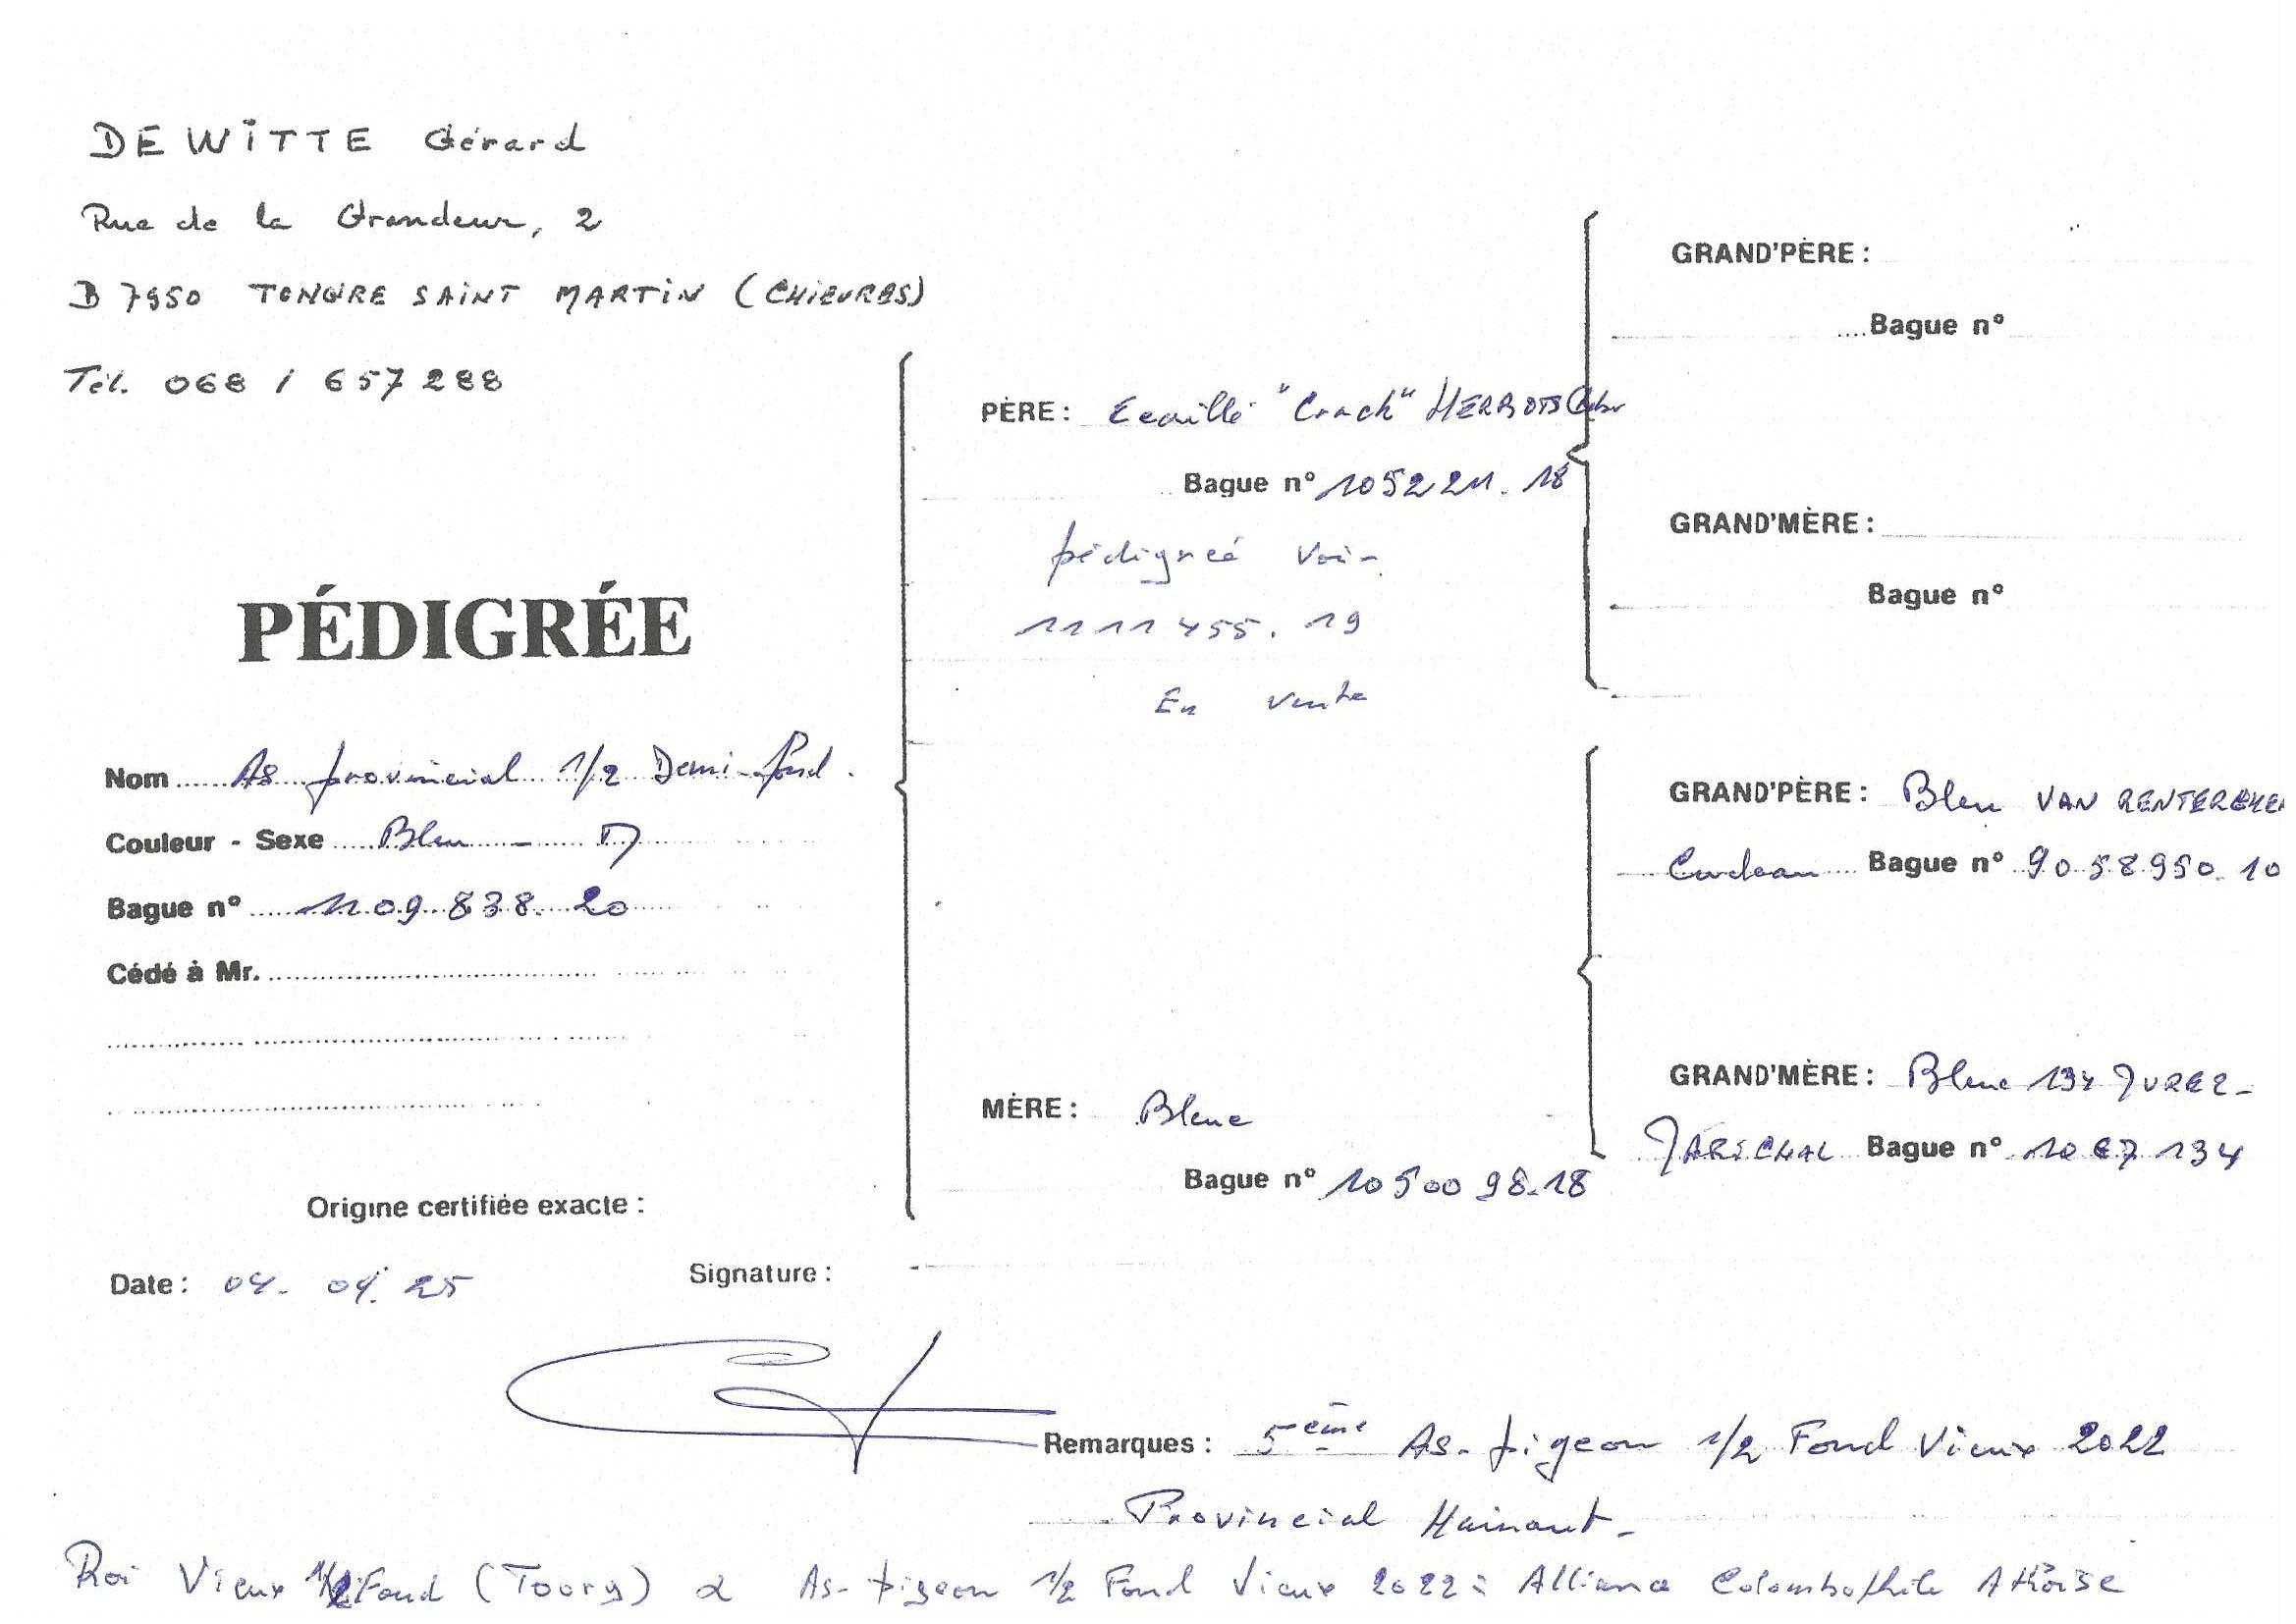 DEWITTE Gérard
Rue de la Grandeur, 2
B 7950 TONGRE SAINT MARTIN (CHIEVRES)
Tél. 068 / 657288
PÉDIGRÉE
Nom As provincial 1/2 Demi-fond.
Couleur - Sexe Bleu - M
Bague n° 1109.838.20
Cédé à Mr.
Origine certifiée exacte :
Date : 04. 04. 25
Signature :
PÈRE : Ecaillé "Crack" HERBOTS
Bague n° 1052211.18
pédigreé voir
1111455.19
En vente
MÈRE : Bleue
Bague n° 1050098.18
GRAND'PÈRE :
Bague n°
GRAND'MÈRE :
Bague n°
GRAND'PÈRE : Bleu VAN
Bague n° 9058950.10
GRAND'MÈRE : Bleue 134
Bague n° 1087134
Remarques : 5ème As-pigeon 1/2 Fond Vieux 2022
Provincial Hainaut-
Roi Vieux 1/2 Fond (Toury) & As-pigeon 1/2 Fond Vieux 2022 : Alliance Colombophile Athoise